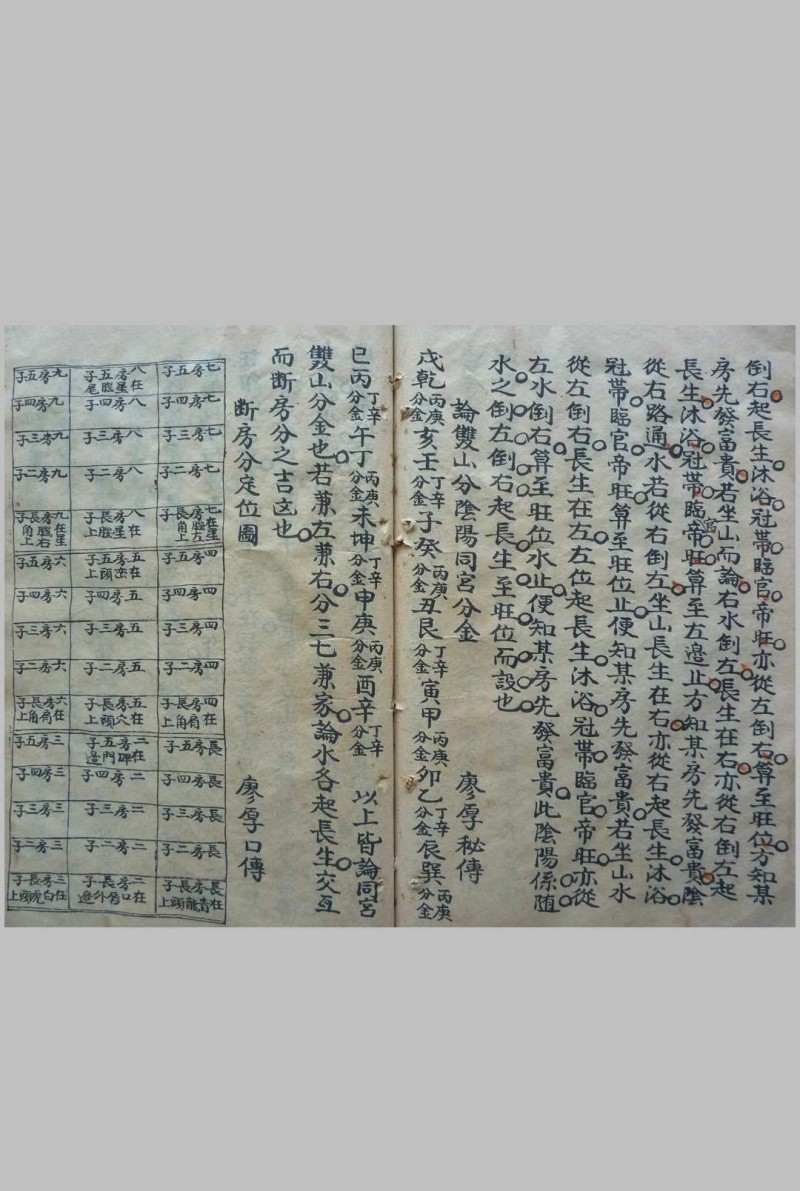 倒右起長生沐浴冠帶臨官帝旺亦從左倒右算至旺位方知某
房先發富貴若坐山而論右水倒左長生在右亦從右倒左起
長生沐浴冠帶臨帝旺算至左邉止方知某房先發富貴陰
從右路通水若從右倒左坐山長生在右亦從右起長生沐浴
冠帶臨官帝旺算至旺位止便知某房先發富貴若坐山水
從左倒右長生在左左位起長生沐浴冠帶臨官帝旺亦從
左水倒右算至旺位水止便知某房先發富貴此陰陽係随
水之倒左倒右起長生至旺位而設也
論雙山分陰陽同宮分金 廖厚秘傳
戌乾丙庚分金亥壬丁辛分金子癸丙庚分金丑艮丁辛分金寅甲丙庚分金卯乙丁辛分金辰巽丙庚分金
巳丙丁辛分金午丁丙庚分金未坤丁辛分金申庚丙庚分金酉辛丁辛分金 以上皆論同宮
雙山分金也若兼左兼右分三七兼家論水各起長生交互
而断房分之吉凶也
断房分定位圖 廖厚口傳
七房五子 八房五子在星腦尾 九房五子
七房四子 八房四子 九房四子
七房三子 八房三子 九房三子
七房二子 八房二子 九房二子
七房長子在星腦左角上 八房長子在星腦上 九房長子在星腦右角上
四房五子 五房五子在巒頭上 六房五子
四房四子 五房四子 六房四子
四房三子 五房三子 六房三子
四房二子 五房二子 六房二子
四房長子在肩角上 五房長子在穴頭上 六房長子在肩角上
長房五子 二房五子在碑門邊 三房五子
長房四子 二房四子 三房四子
長房三子 二房三子 三房三子
長房二子 二房二子 三房二子
長房長子在青龍頭上 二房長子在口唇外邊 三房長子在白虎頭上